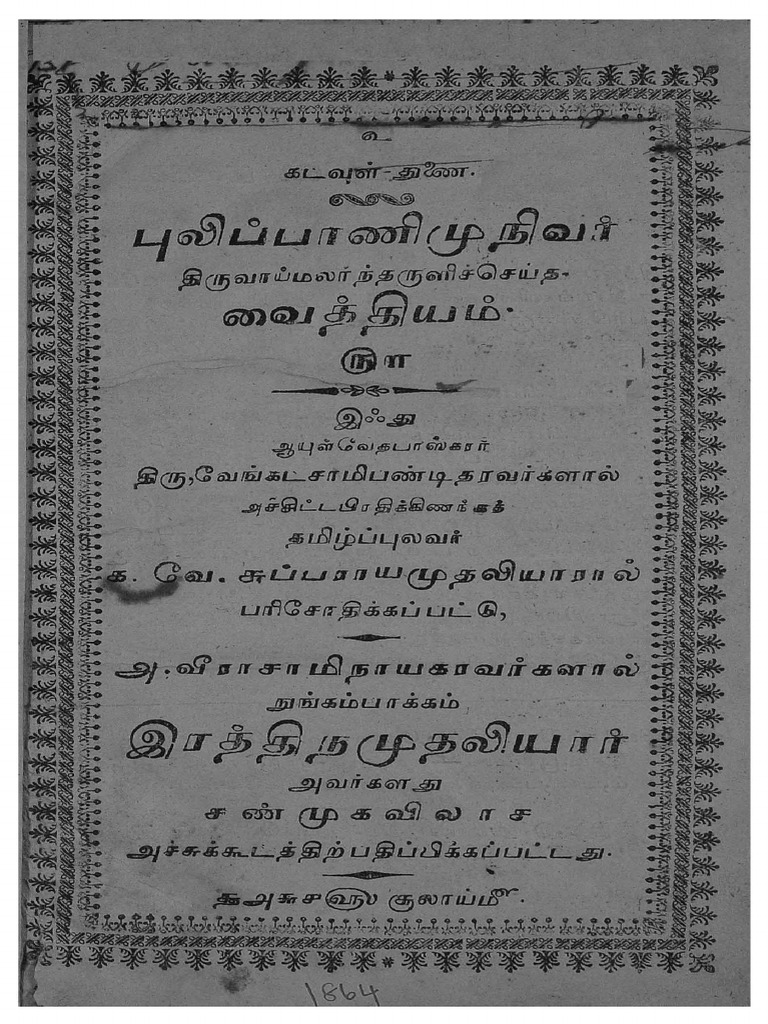 உ
கடவுள்-துணை.
புலிப்பாணிமுநிவர்
திருவாய்மலர்ந்தருளிச்செய்த-
வைத்தியம்.
௫௱
இஃது
ஆயுள்வேதபாஸ்கரர்
திரு,வேங்கடசாமிபண்டிதரவர்களால்
அச்சிட்டபிரதிக்கிணங்கத்
தமிழ்ப்புலவர்
க. வே. சுப்பராயமுதலியாரால்
பரிசோதிக்கப்பட்டு,
அ.வீராசாமிநாயகரவர்களால்
றுங்கம்பாக்கம்
இரத்திநமுதலியார்
அவர்களது
சண்முகவிலாச
அச்சுக்கூடத்திற்பதிப்பிக்கப்பட்டது.
ஜூலாய்மீ.
1864